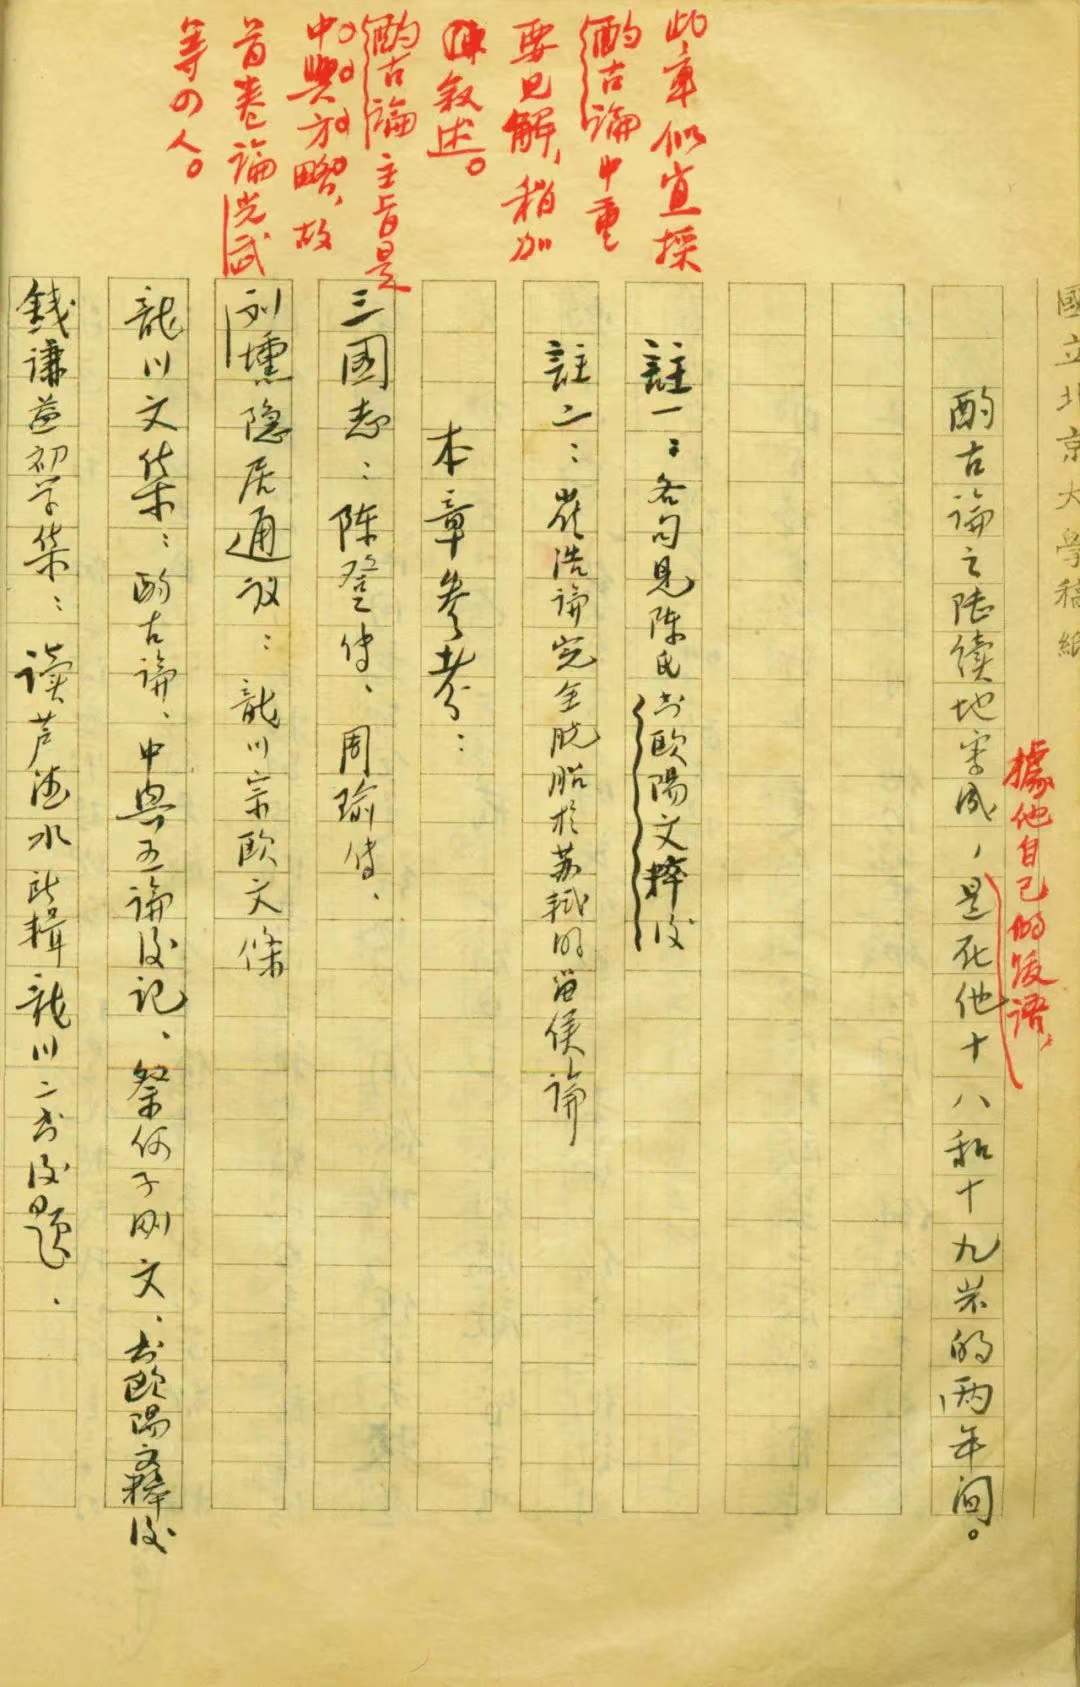 國立北京大學稿紙
據他自己的跋語，
酌古論之陸續地寫成，是在他十八和十九岁的两年间。
此章似宜採
酌古論中重
要見解，稍加
敘述。
酌古論主旨是
中興方略，故
首卷論光武
等の人。
註一：各句見陈氏书歐陽文粹後
註二：崔浩論完全脱胎於苏軾的留侯論
本章參考：
三國志：陈登传、周瑜传、
刘壎隐居通议：龍川宗歐文條
龍川文集：酌古論、中興五論後记、祭何子刚文、书歐陽文粹後
錢谦益初学集：读芦德水所輯龍川二书後題、